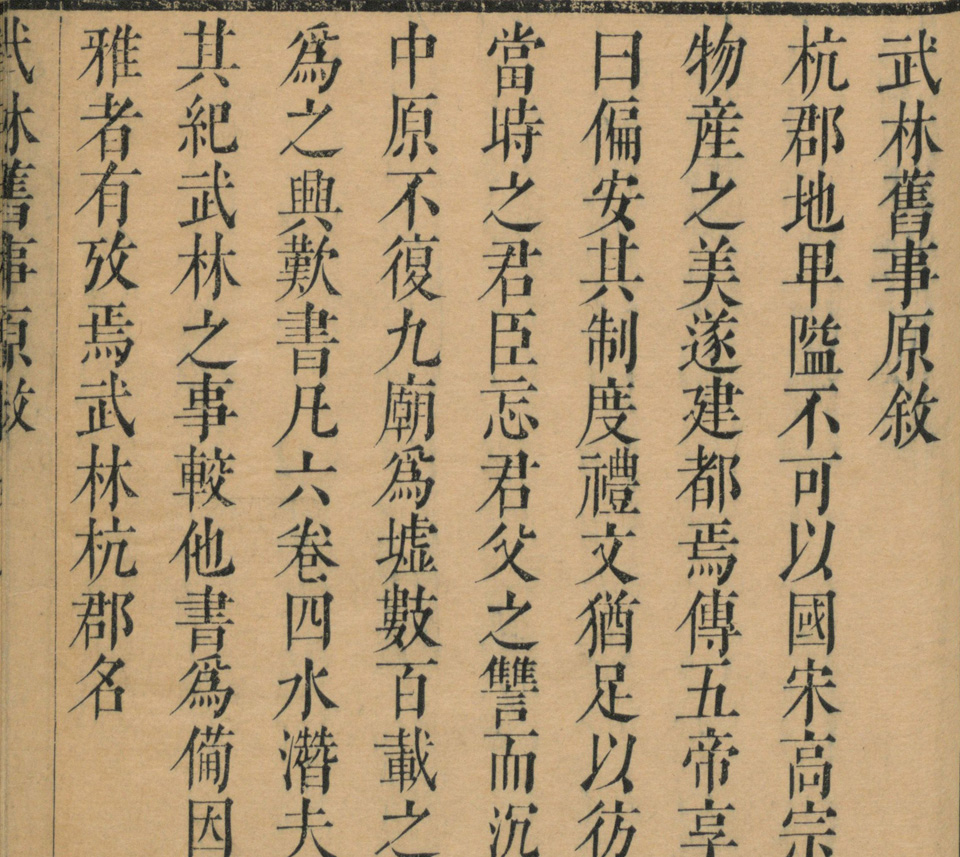 武林舊事原敘
杭郡地𤰞隘不可以國宋高宗
物産之美遂建都焉傳五帝享
曰偏安其制度禮文猶足以彷
當時之君臣忘君父之讐而沉
中原不復九廟爲墟數百載之
爲之興歎書凡六卷四水潛夫
其紀武林之事較他書爲備因
雅者有攷焉武林杭郡名
武林舊事原敘